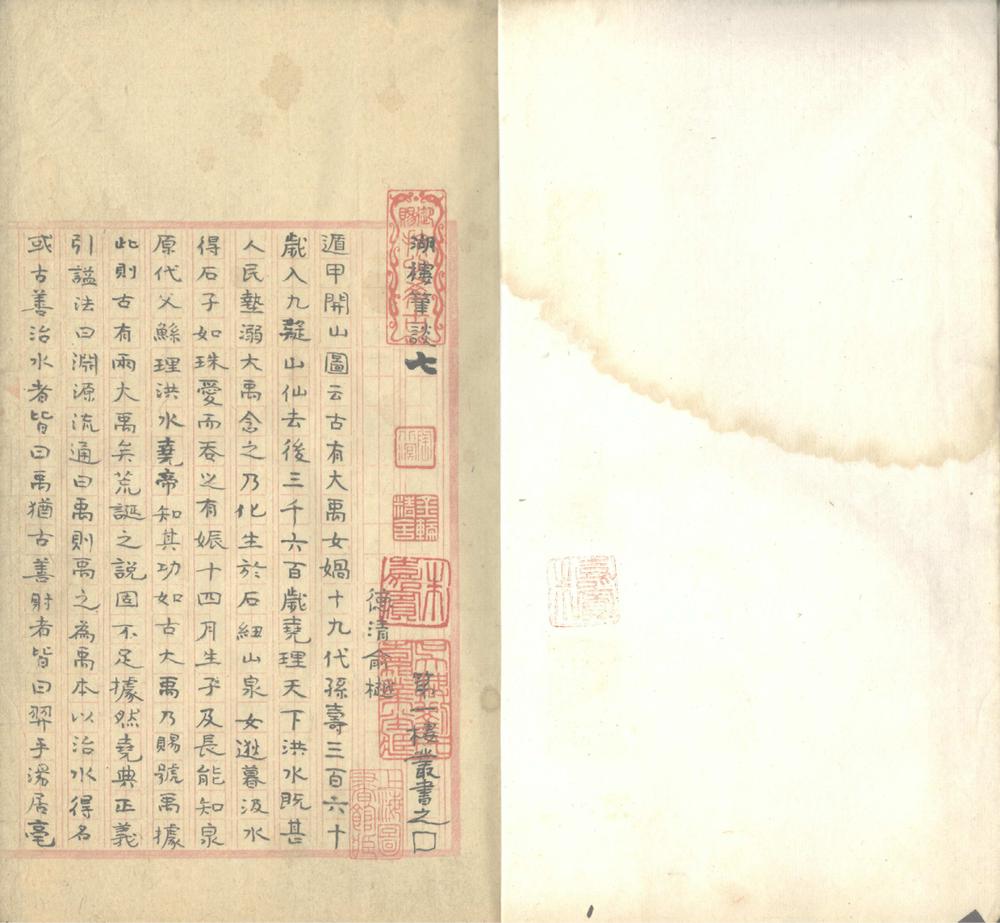 湖樓筆談七
第一樓叢書之囗
德清俞樾
遁甲開山圖云古有大禹女媧十九代孫壽三百六十
歲入九嶷山仙去後三千六百歲堯理天下洪水既甚
人民墊溺大禹念之乃化生於石紐山泉女遊暮汲水
得石子如珠愛而吞之有娠十四月生子及長能知泉
原代父鯀理洪水堯帝知其功如古大禹乃賜號禹據
此則古有兩大禹矣荒誕之說固不足據然堯典正義
引謚法曰淵源流通曰禹則禹之為禹本以治水得名
或古善治水者皆曰禹猶古善射者皆曰羿乎湯居亳